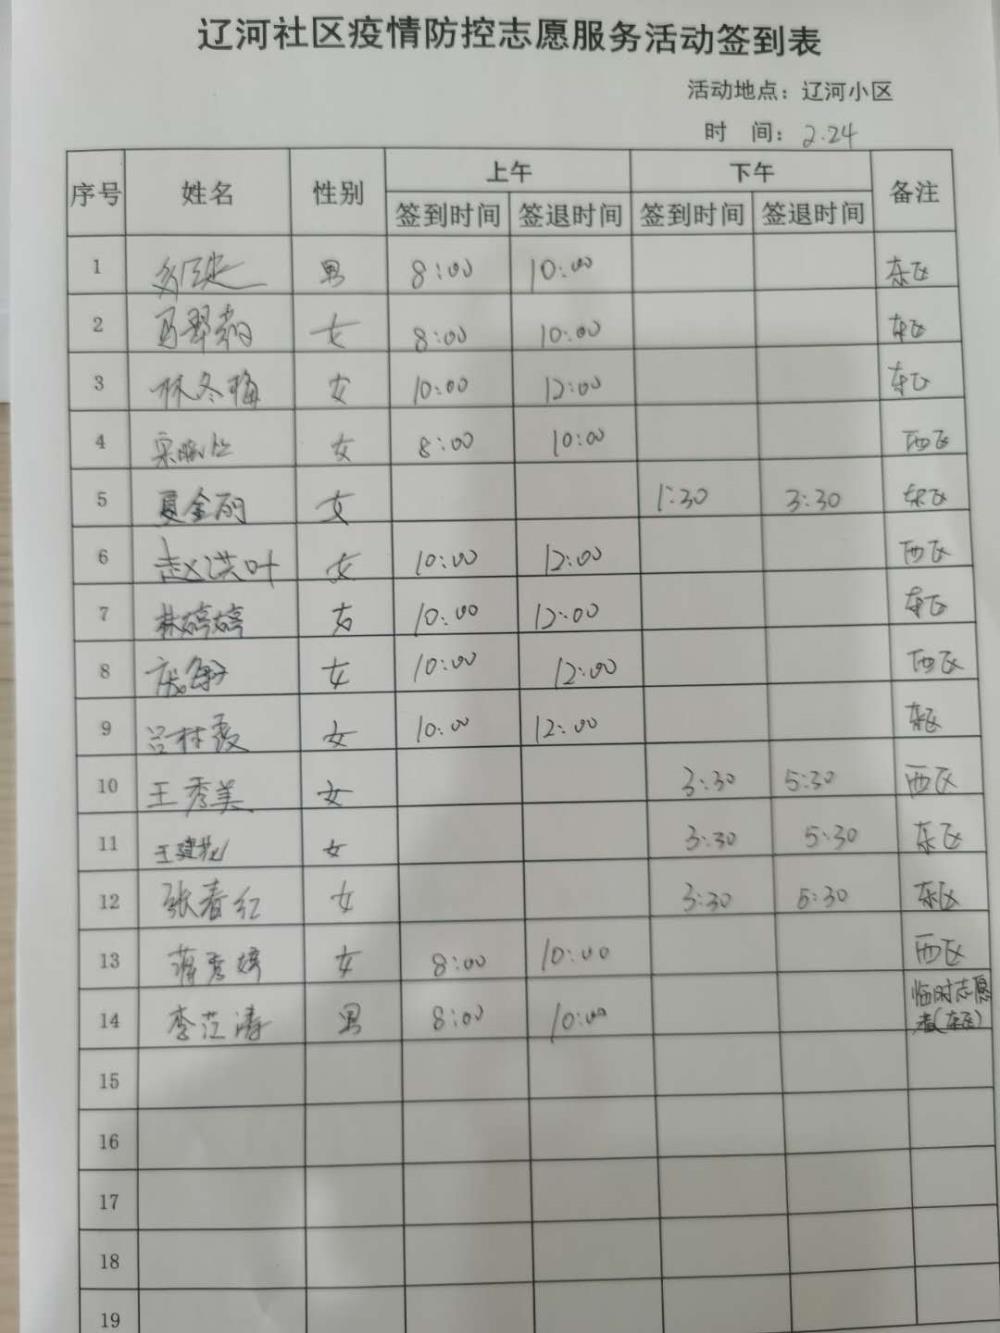 辽河社区疫情防控志愿服务活动签到表
活动地点：辽河小区
时 间：2.24
序号 姓名 性别 上午 下午 备注
签到时间 签退时间 签到时间 签退时间
1 男 8:00 10:00 东区
2 女 8:00 10:00 东区
3 林冬梅 女 10:00 12:00 东区
4 女 8:00 10:00 西区
5 夏金丽 女 1:30 3:30 东区
6 赵洪叶 女 10:00 12:00 西区
7 林婷婷 女 10:00 12:00 东区
8 女 10:00 12:00 西区
9 吕林霞 女 10:00 12:00 东区
10 王秀美 女 3:30 5:30 西区
11 女 3:30 5:30 东区
12 张春红 女 3:30 5:30 东区
13 蒋秀婷 女 8:00 10:00 西区
14 李范涛 男 8:00 10:00 临时志愿
者(东区)
15
16
17
18
19